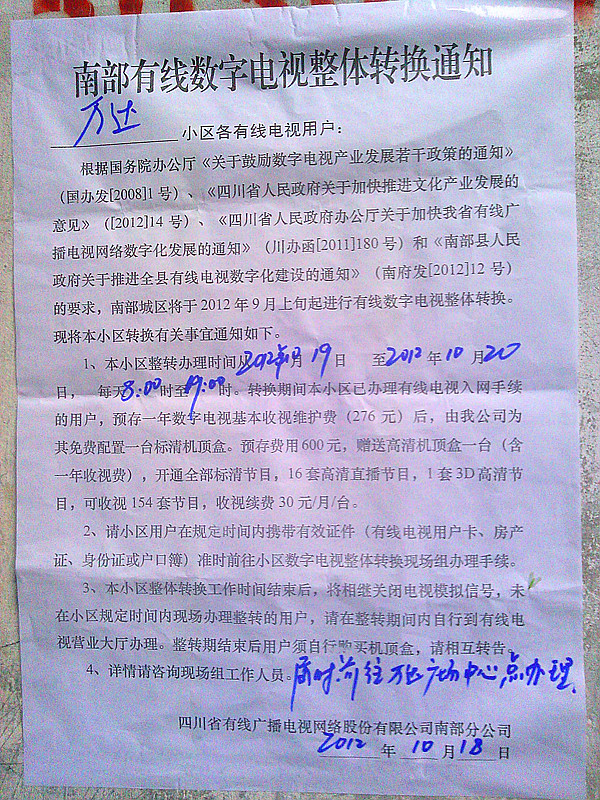 南部有线数字电视整体转换通知
万达 小区各有线电视用户：
根据国务院办公厅《关于鼓励数字电视产业发展若干政策的通知》
（国办发[2008]1 号）、《四川省人民政府关于加快推进文化产业发展的
意见》（[2012]14 号）、《四川省人民政府办公厅关于加快我省有线广
播电视网络数字化发展的通知》（川办函[2011]180 号）和《南部县人民
政府关于推进全县有线电视数字化建设的通知》（南府发[2012]12 号）
的要求，南部城区将于 2012 年 9 月上旬起进行有线数字电视整体转换。
现将本小区转换有关事宜通知如下。
1、本小区整转办理时间从2012年10月 19 日 至2012 年 10 月 20
日， 每天8:00时至19:00时。转换期间本小区已办理有线电视入网手续
的用户，预存一年数字电视基本收视维护费（276 元）后，由我公司为
其免费配置一台标清机顶盒。预存费用 600 元，赠送高清机顶盒一台（含
一年收视费），开通全部标清节目，16 套高清直播节目，1 套 3D 高清节
目，可收视 154 套节目，收视续费 30 元/月/台。
2、请小区用户在规定时间内携带有效证件（有线电视用户卡、房产
证、身份证或户口簿）准时前往小区数字电视整体转换现场组办理手续。
3、本小区整体转换工作时间结束后，将相继关闭电视模拟信号，未
在小区规定时间内现场办理整转的用户，请在整转期间内自行到有线电
视营业大厅办理。整转期结束后用户须自行购买机顶盒，请相互转告。
4、详情请咨询现场组工作人员。届时前往万达广场中心点办理.
四川省有线广播电视网络股份有限公司南部分公司
2012 年 10 月 18 日